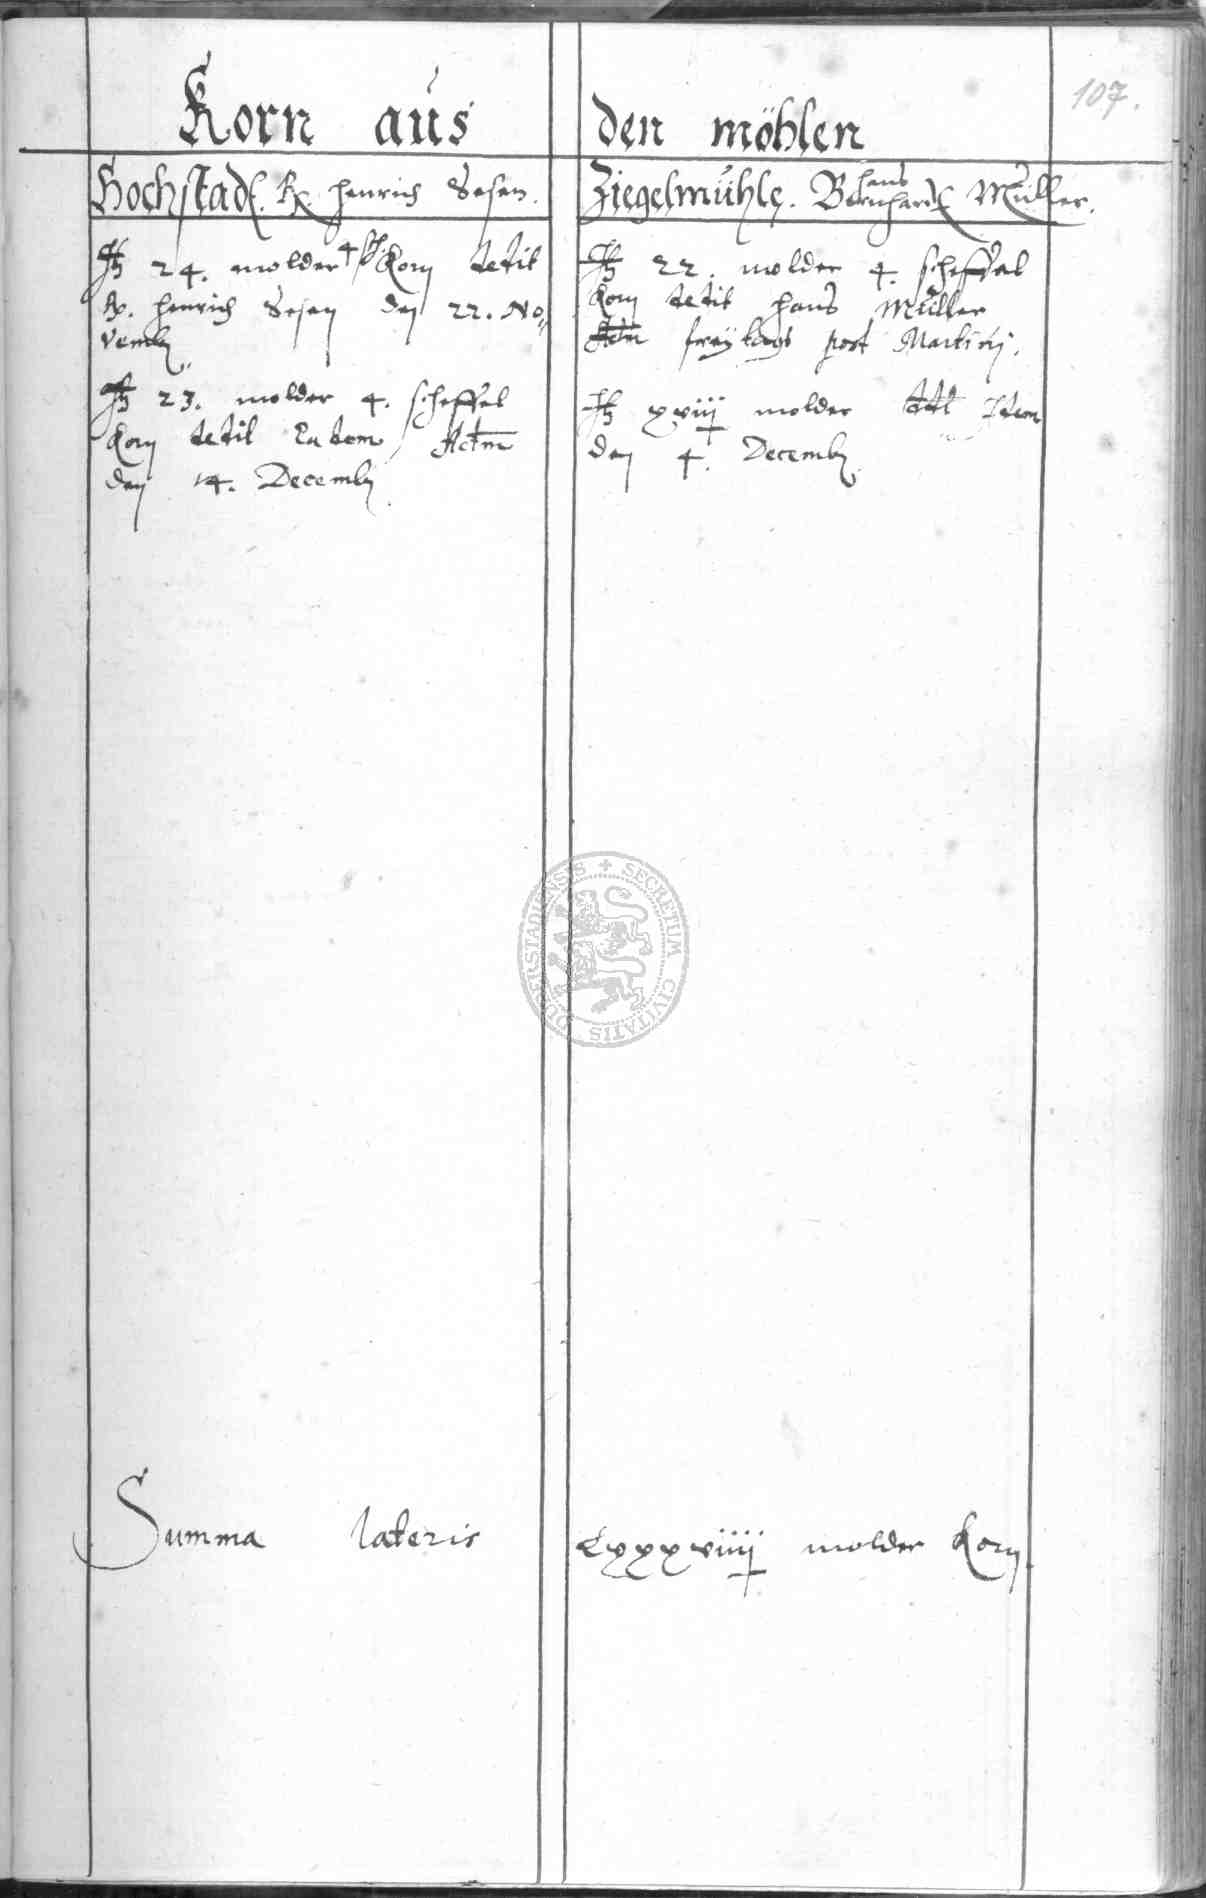 107.
Korn aus den möhlen
Hochstad. Henrich Sesen.
It 24. molder 4 Korn tetit
Henrich Sesen den 22. No
vemb
It 23. molder 4. scheffel
Korn tetit Actm
den 14. Decemb
Ziegelmühle. Bernhardt hans Müller.
It 22. molder 4. scheffel
Korn tetit hans Müller
Actm freytags post Martini.
It xviiij molder Item
den 4. Decemb
Summa lateris Lxxxviiij molder Korn.
SECRETUM CIVITATIS DUDERSTADIENSIS